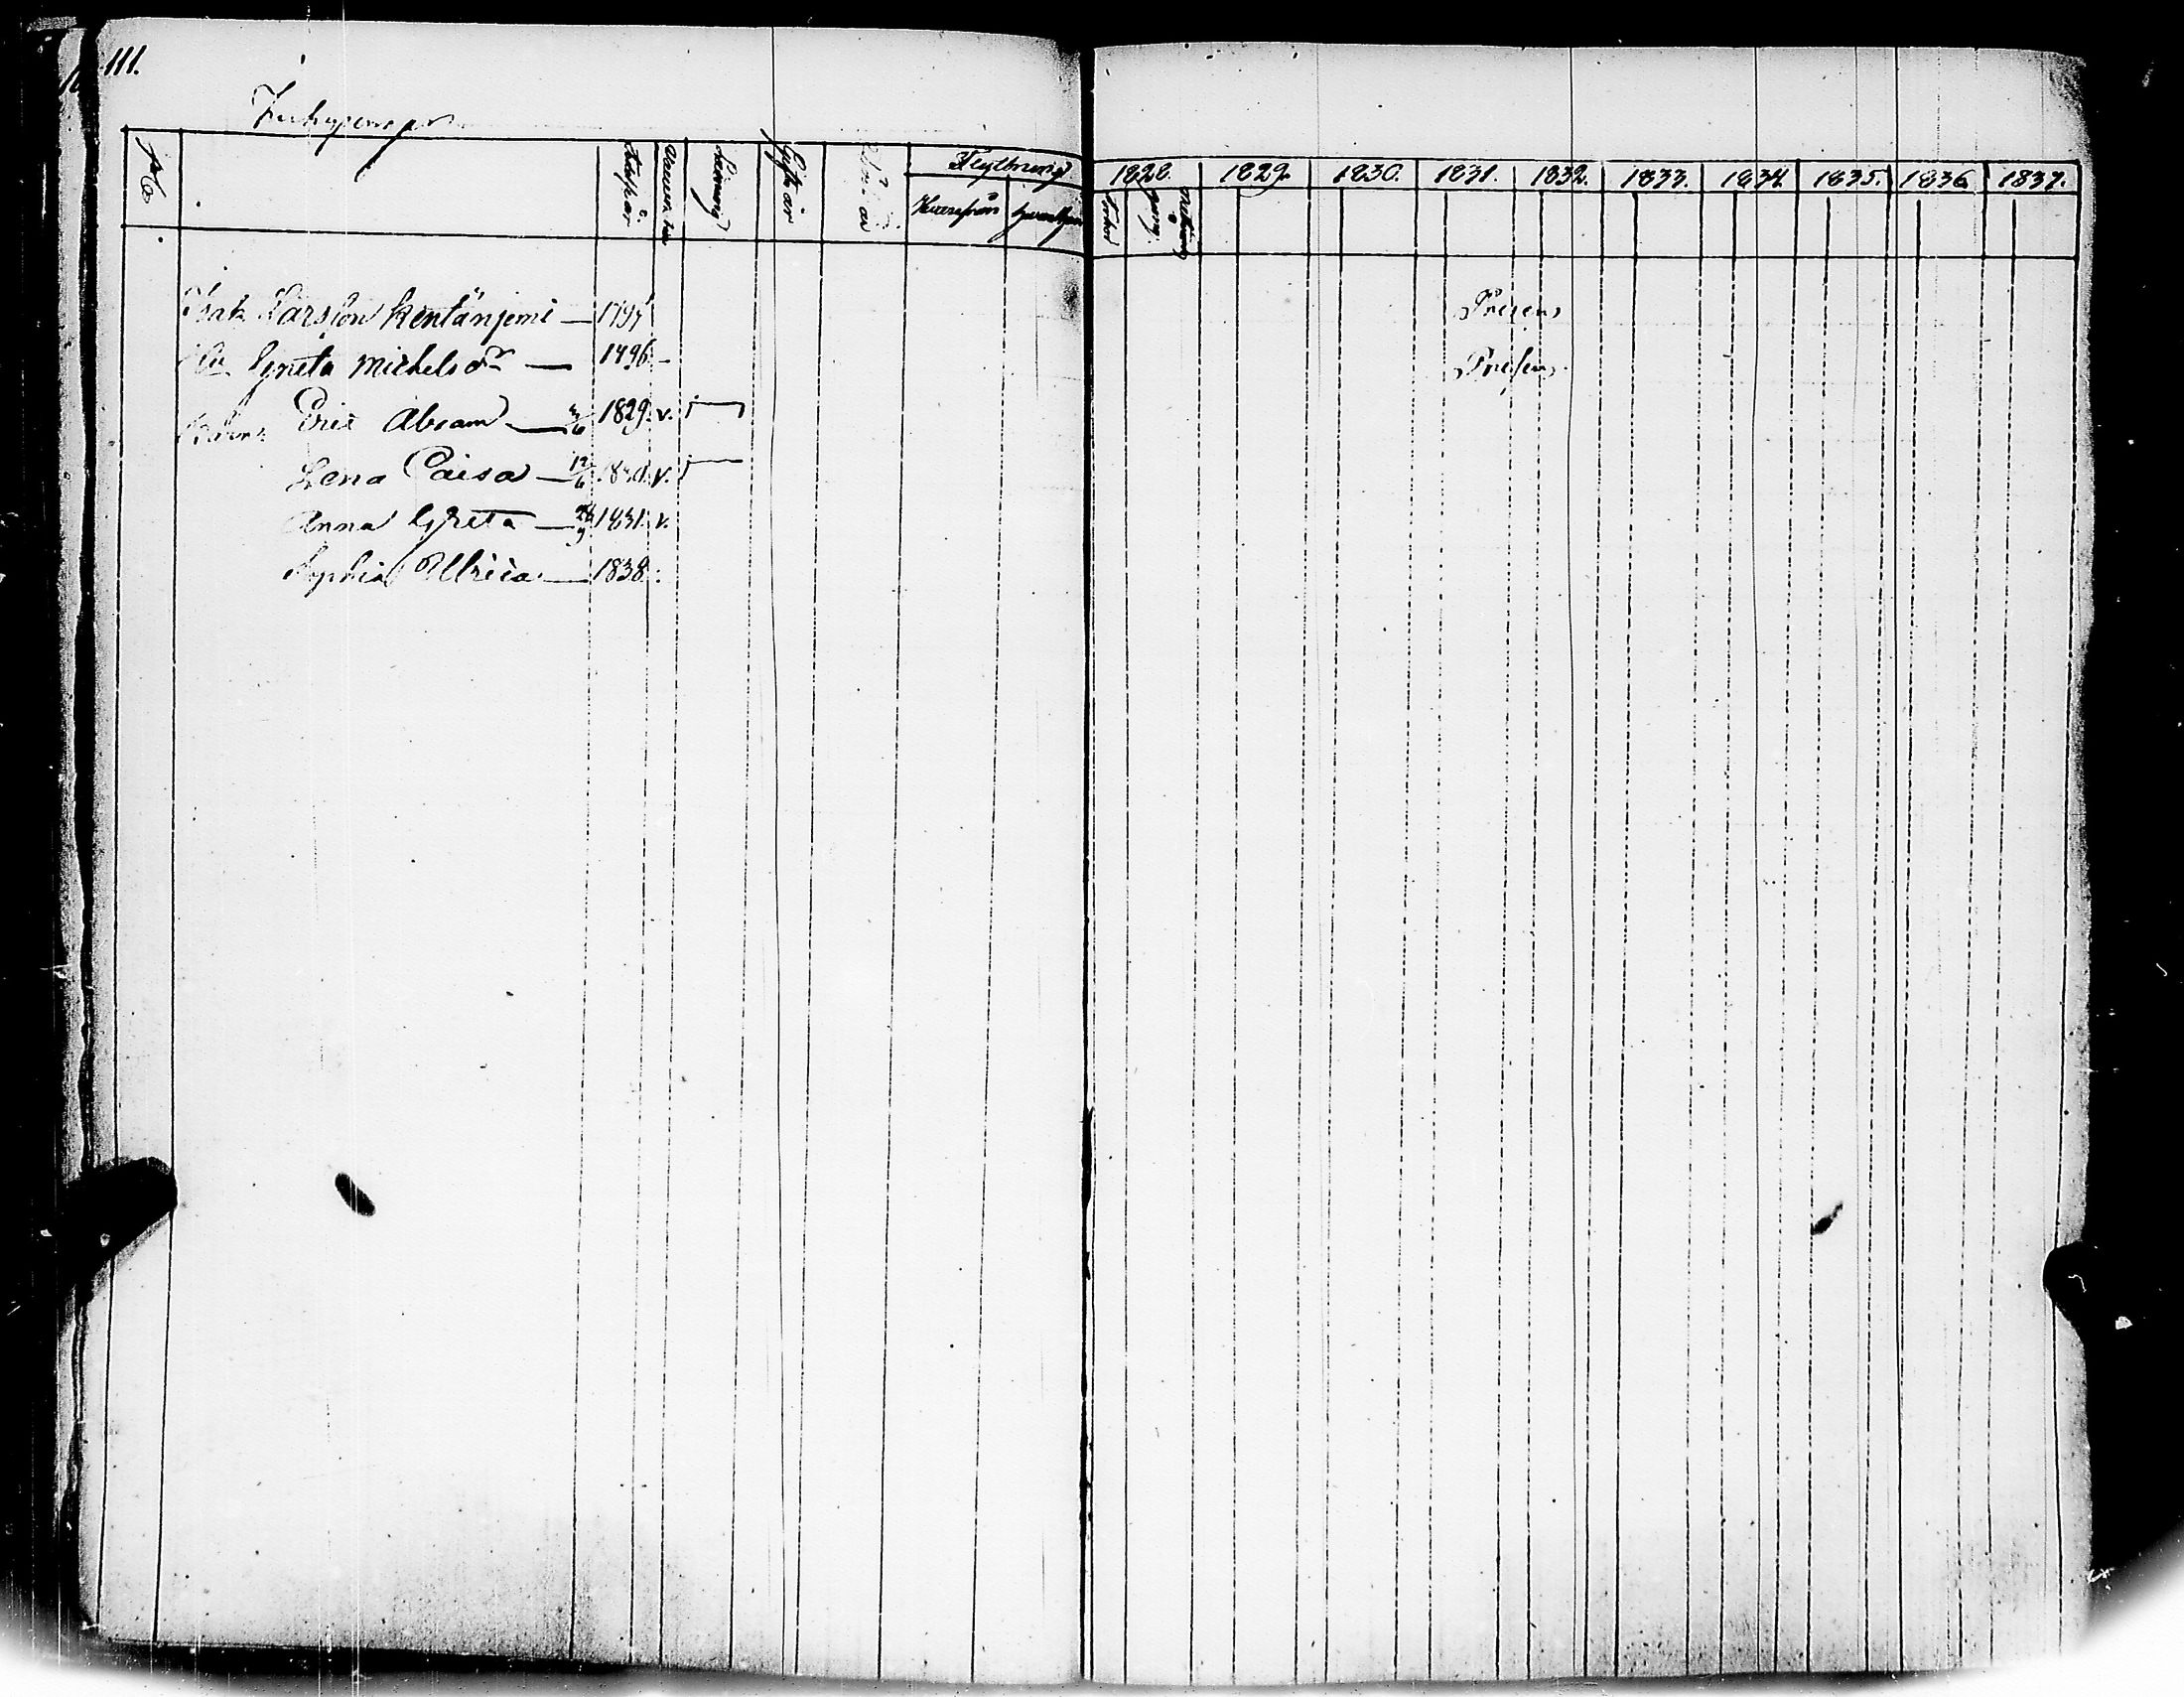 111.
Födelseår Läsning Gift år Flyttning
Hvarifrån
1828. 1829. 1830. 1831. 1832. 1833. 1834. 1835. 1836. 1837.
Isak Larsson Kentänjemi — 1795 Presens
Greta Michelsdr — 1796. — Presens
Barn: Eric Abram — 1829. v.
Lena Caisa — 12/6 v.
Anna Greta — 1831. v.
Sophia Ulrica — 1838.